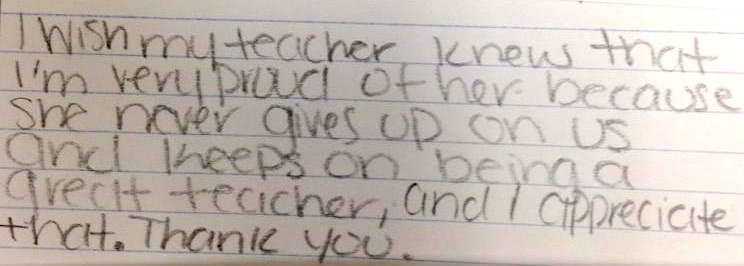 I wish my teacher knew that
I'm very proud of her because
she never gives up on us
and keeps on being a
great teacher, and I appreciate
that. Thank you.